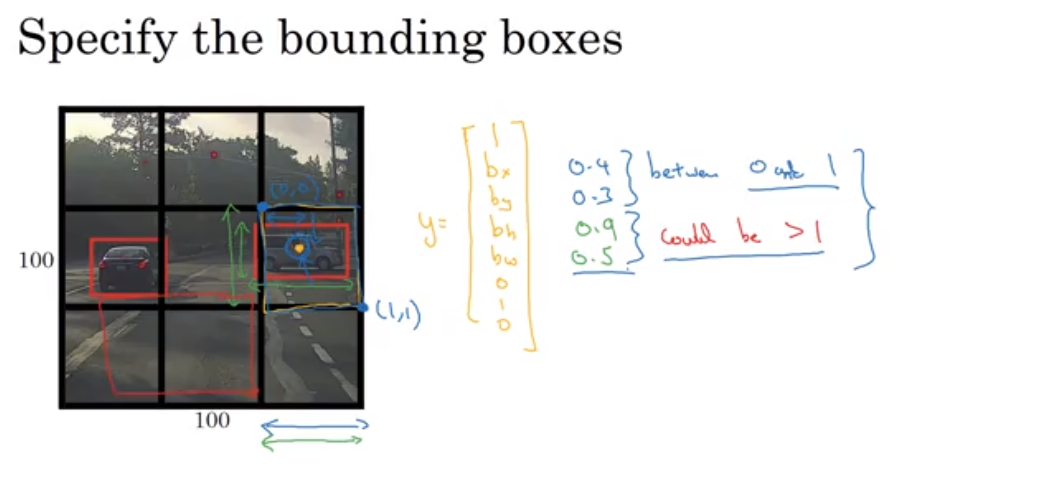 Specify the bounding boxes
100
100
(0,0)
(1,1)
y=
1
bx
by
bh
bw
0
1
0
0.4
0.3
0.9
0.5
between 0 and 1
could be >1